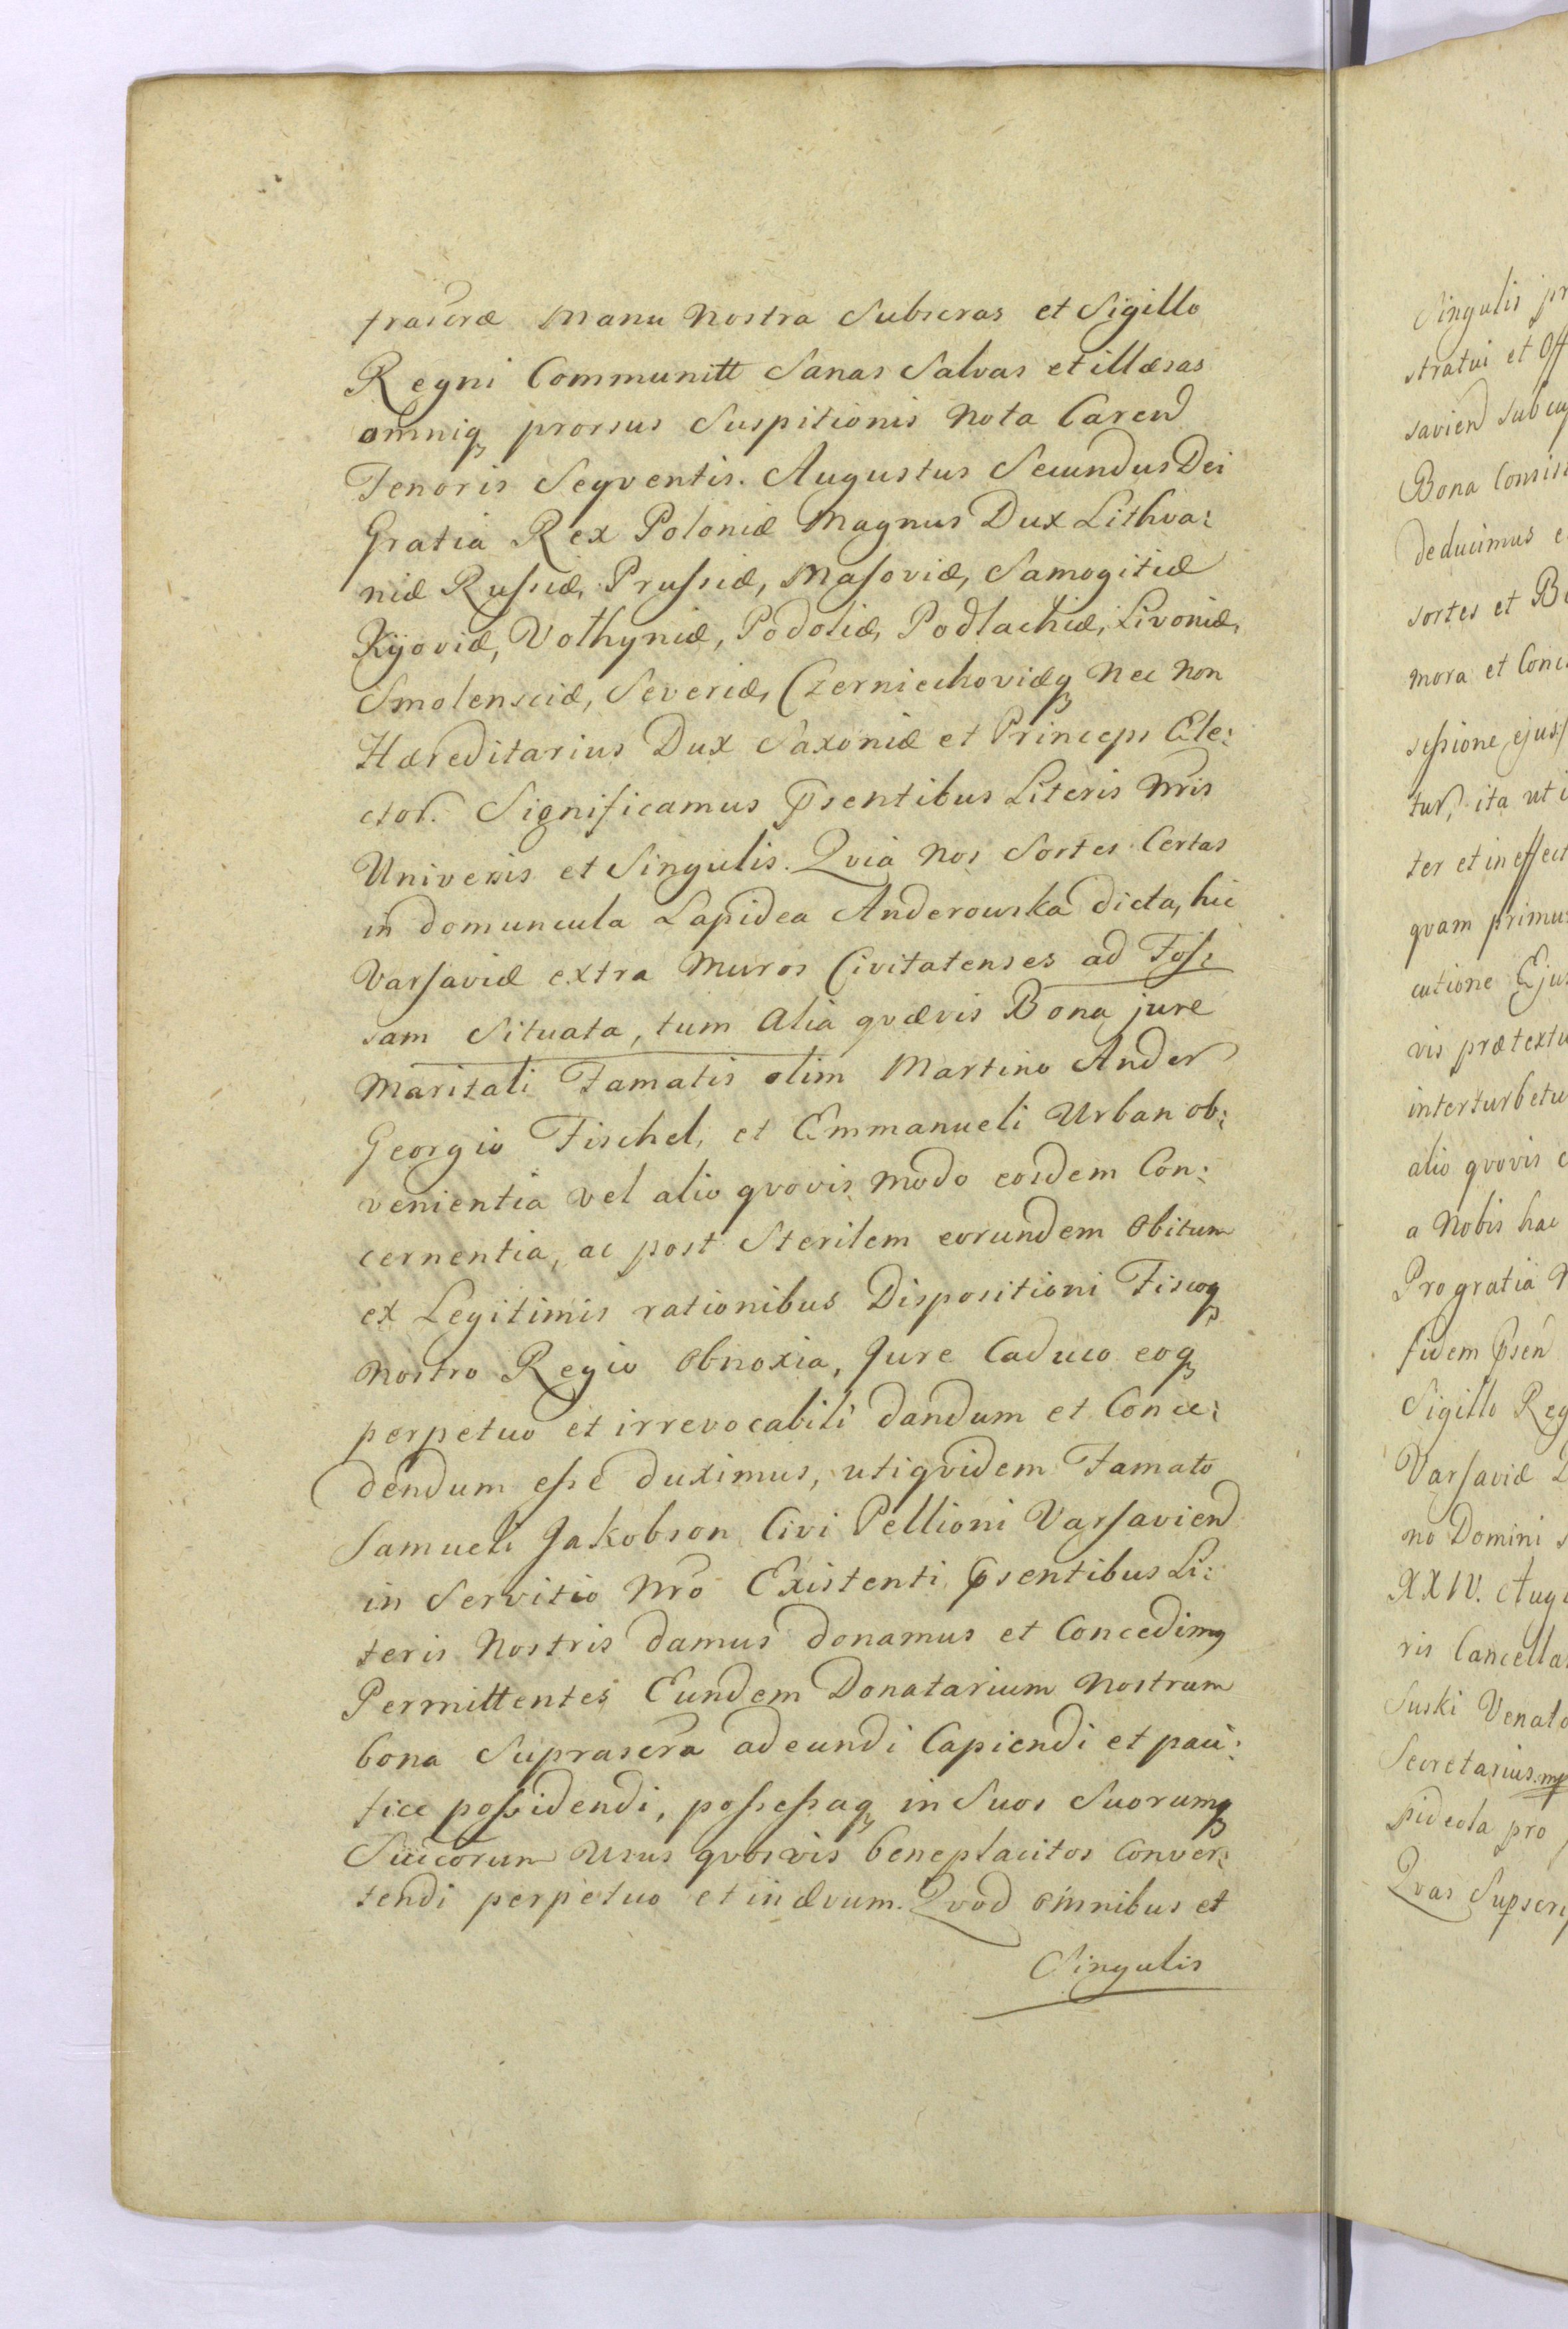 frascræ Manu Nostra Subscras et Sigillo
Regni Communitt Sanas Salvas et illæsas
omniq prorsus Suspitionis Nota Caren
Tenoris Seqventis. Augustus Secundus Dei
Gratia Rex Poloniæ Magnus Dux Lithva:
niæ Russiæ, Prussiæ, Masoviæ, Samogitiæ
Kijoviæ, Volhyniæ, Podoliæ, Podlachiæ, Livoniæ,
Smolensciæ, Severiæ, Czerniechoviæq Nec Non
Hæreditarius Dux Saxoniæ et Princeps Ele:
ctor. Significamus Psentibus Literis Nris
Universis et Singulis. Qvia Nos Sortes Certas
in domuncula Lapidea Anderowska dicta, hic
Varsaviæ extra Muros Civitatenses ad Fos:
sam Situata, tum Alia qvævis Bona jure
Maritali Famatis olim Martino Ander
Georgio Fischel, et Emmanueli Urban ob:
venientia vel alio qvovis modo eosdem Con:
cernentia, ac post Sterilem eorundem Obitum
ex Legitimis rationibus Dispositioni Fiscoq
Nostro Regio Obnoxia, Jure Caduco eoq
perpetuo et irrevocabili dandum et Conce:
dendum esse duximus, utiqvidem Famato
Samueli Jakobson Civi Pellioni Varsavien
in Servitio Nro Existenti Psentibus Li:
teris Nostris damus donamus et Concedimq
Permittentes Eundem Donatarium Nostrum
bona Suprascra adeundi Capiendi et paci:
fice possidendi, possessaq in Suos Suorumq
Succorum Usus qvosvis beneplacitos Conver:
tendi perpetuo et in ævum. Qvod omnibus et
Singulis
Singulis pr
stratui et Off
savien sub cuj
Bona Consis
deducimus e
sortes et B
mora et Conc
sessione ejus
tur, ita ut i
ter et in effect
qvam primu
cutione Eju
vis prætextu
interturbetu
alio qvovis
a Nobis hac
Pro gratia
fidem Psen
Sigillo Reg
Varsaviæ
no Domini
XXIV. Aug
ris Cancella
Suski Venato
Secretarius mp
pideola pro
Qvas Supscri